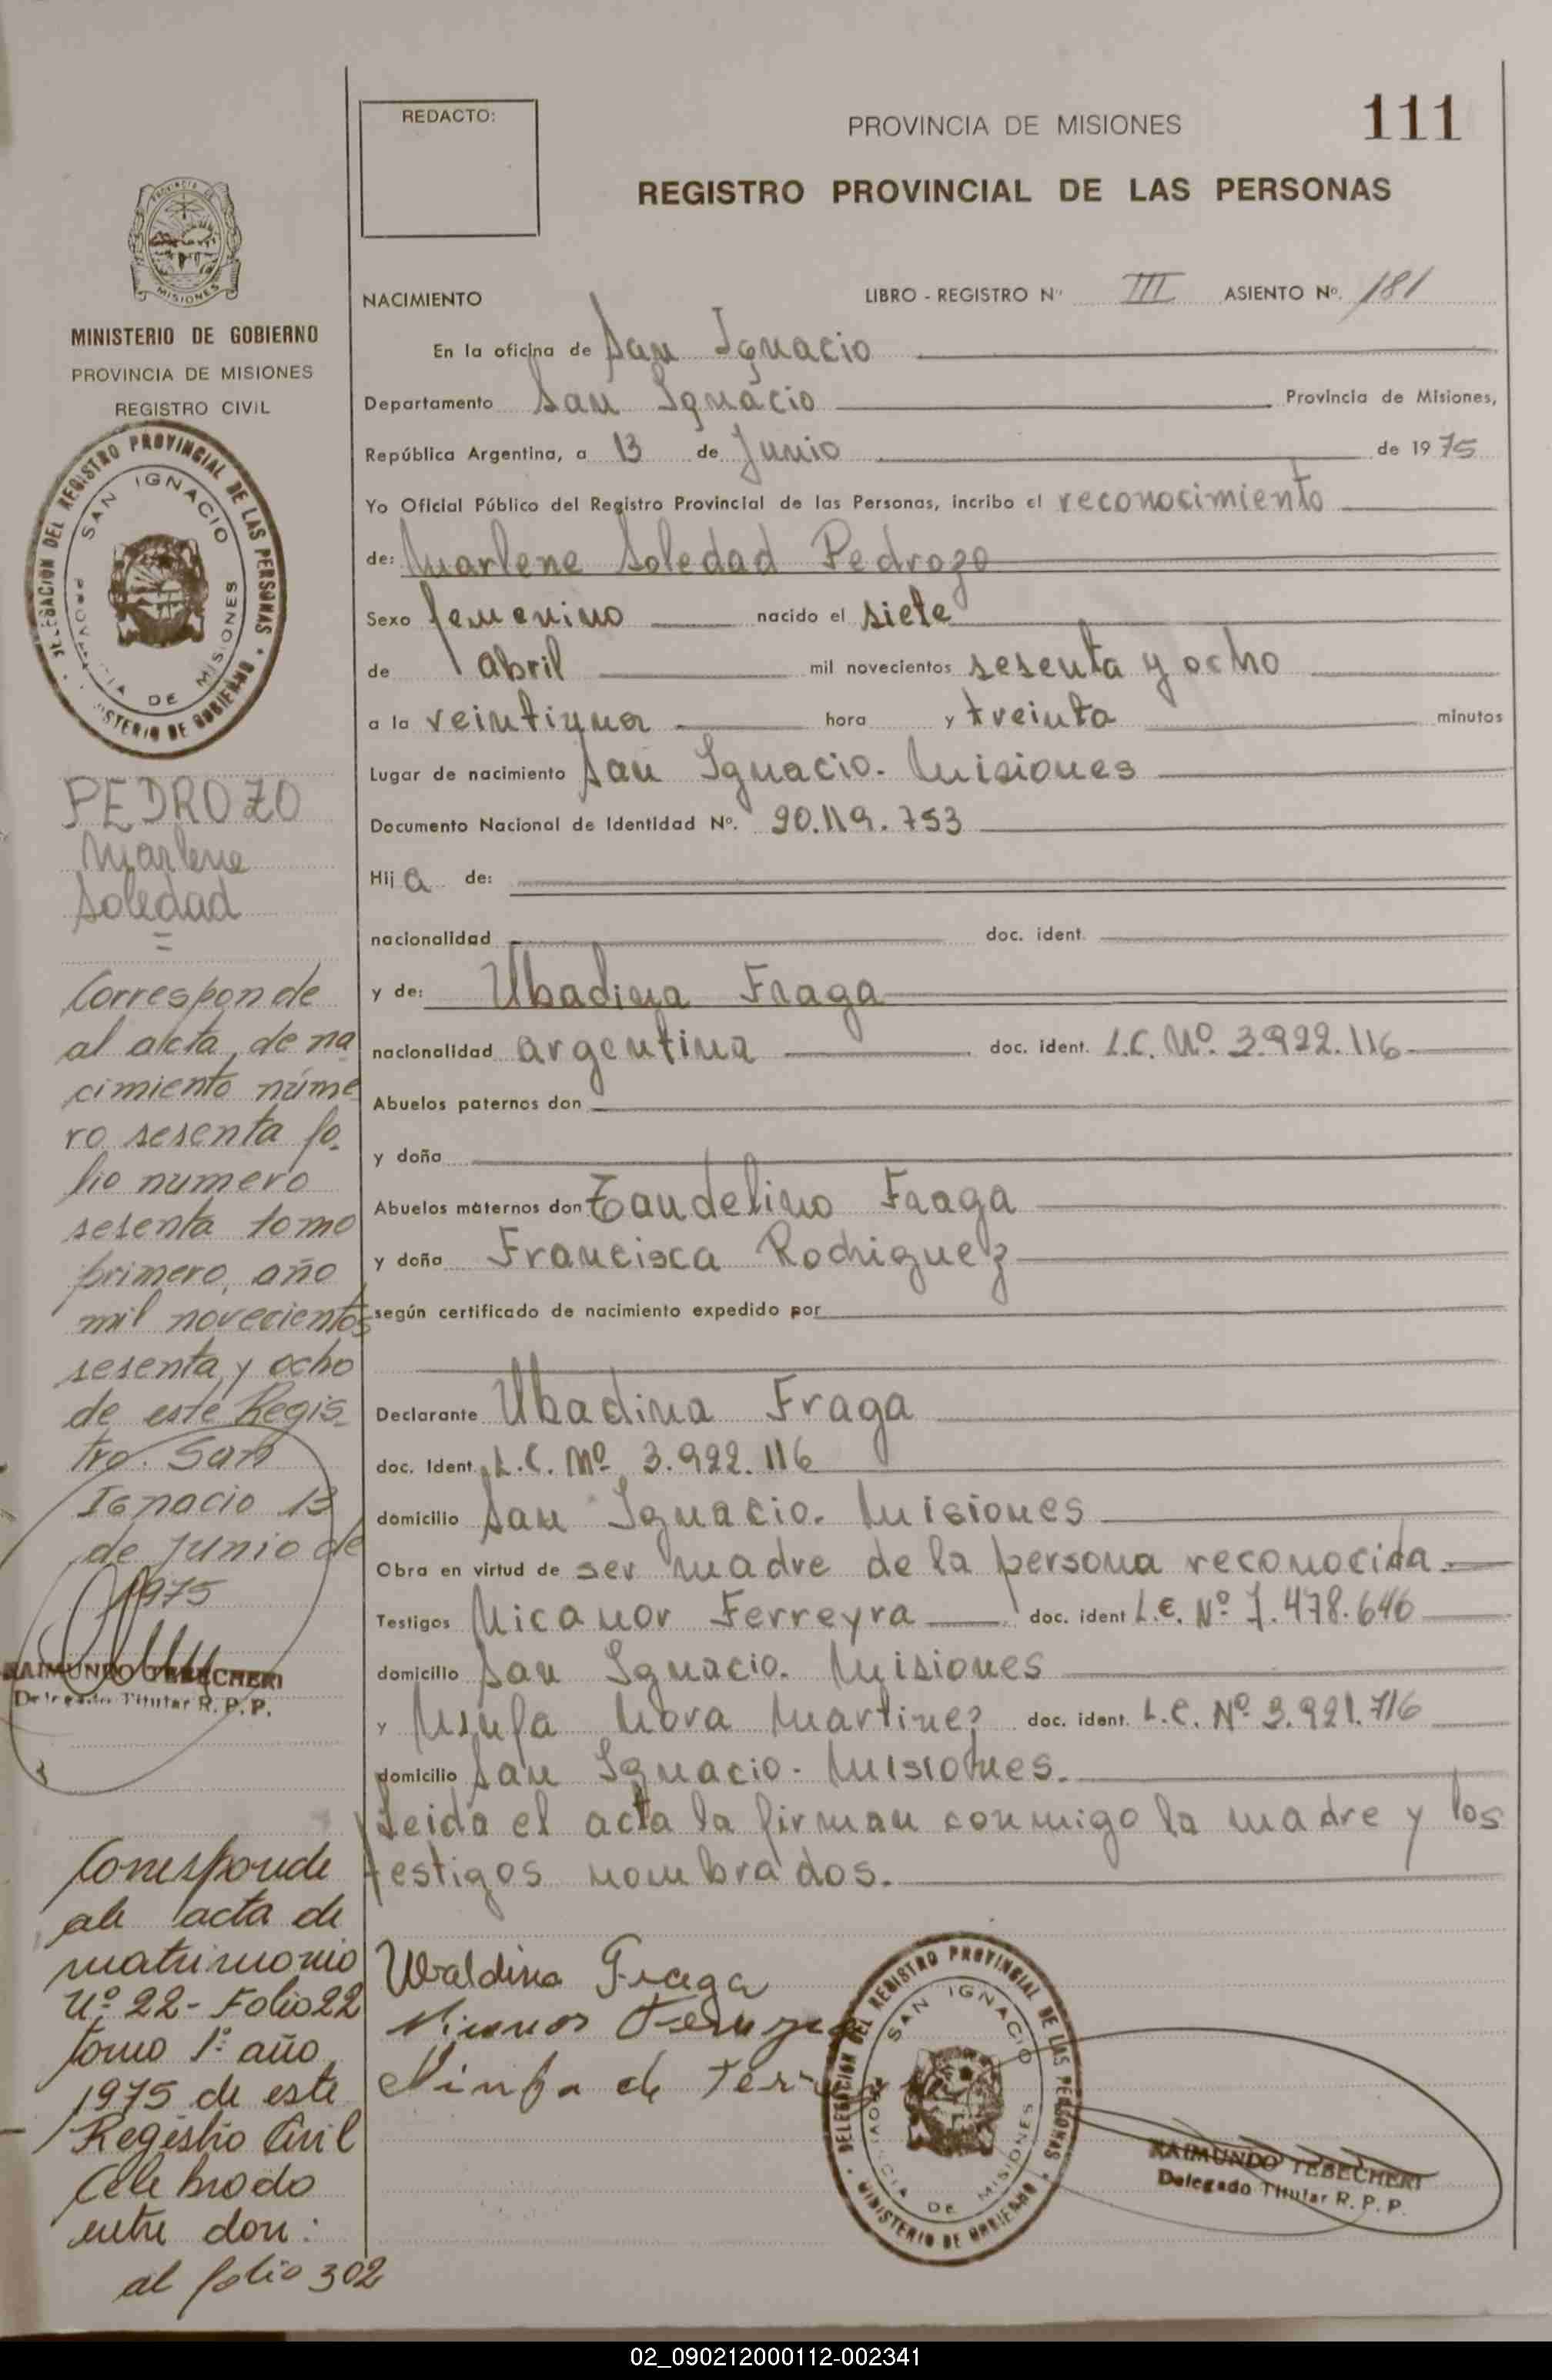 REDACTO:
PROVINCIA DE MISIONES
111
REGISTRO PROVINCIAL DE LAS PERSONAS
MISIONES
MINISTERIO DE GOBIERNO
PROVINCIA DE MISIONES
REGISTRO CIVIL
DELEGACION DEL REGISTRO PROVINCIAL DE LAS PERSONAS
SAN IGNACIO
PROVINCIA DE MISIONES
MINISTERIO DE GOBIERNO
PEDROZO
Marlene
Soledad
Corresponde
al acta de na
cimiento núme
ro sesenta fo-
lio numero
sesenta tomo
primero, año
mil novecientos
sesenta y ocho
de este Regis-
tro. San
Ignacio 13
de Junio de
1975
RAIMUNDO TEBECHERI
Delegado Titular R. P. P.
Corresponde
al acta de
matrimonio
Nº 22 - Folio 22
tomo 1º año
1975 de este
Registro Civil
Celebrado
entre don:
al folio 302
NACIMIENTO LIBRO - REGISTRO Nº III ASIENTO Nº. 181
En la oficina de San Ignacio
Departamento San Ignacio Provincia de Misiones,
República Argentina, a 13 de Junio de 1975
Yo Oficial Público del Registro Provincial de las Personas, incribo el reconocimiento
de: Marlene Soledad Pedrozo
Sexo femenino nacido el siete
de abril mil novecientos sesenta y ocho
a la veintiuna hora y treinta minutos
Lugar de nacimiento San Ignacio. Misiones
Documento Nacional de Identidad Nº. 20.119.753
Hij a de:
nacionalidad doc. ident.
y de: Ubadina Fraga
nacionalidad argentina doc. ident. L.C. Nº. 3.922.116
Abuelos paternos don
y doña
Abuelos maternos don Fraga
y doña Francisca Rodriguez
según certificado de nacimiento expedido por
Declarante Ubadina Fraga
doc. Ident. L.C. Nº 3.922.116
domicilio San Ignacio. Misiones
Obra en virtud de ser madre de la persona reconocida.
Testigos Nicanor Ferreyra doc. ident L.E. Nº 7.478.646
domicilio San Ignacio. Misiones
y Ninfa Mora Martinez doc. ident. L.C. Nº 3.921.716
domicilio San Ignacio - Misiones.
Leida el acta la firman conmigo la madre y los
testigos nombrados.
Ubaldina Fraga
Nicanor Ferreyra
Ninfa de
DELEGACION DEL REGISTRO PROVINCIAL DE LAS PERSONAS
SAN IGNACIO
PROVINCIA DE MISIONES
MINISTERIO DE GOBIERNO
RAIMUNDO TEBECHERI
Delegado Titular R. P. P.
02_090212000112-002341